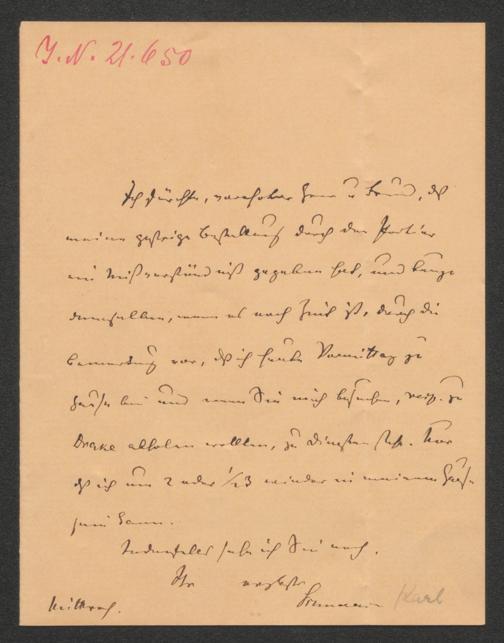 J. N. 21.650
Ich fürchte, verehrter Herr u Freund, daß
meine gestrige Bestellung durch den Portier
ein Mißverständniß gegeben hat, und beuge
demselben, wenn es noch Zeit ist, durch die
Bemerkung vor, daß ich heute Vormittag zu
Hause bin und wenn Sie mich besuchen, resp. zu
Drake abholen wollten, zu Diensten stehe. Nur
daß ich um 2 oder 1/23 wieder in meinem Hause
sein kann.
Jedenfalls sehe ich Sie noch.
Ihr ergebenster
Mittwoch.
Karl